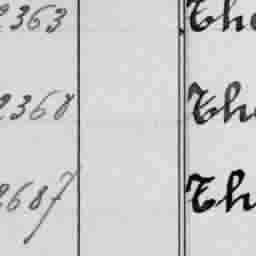 2363 The
2368 The
2687 Th